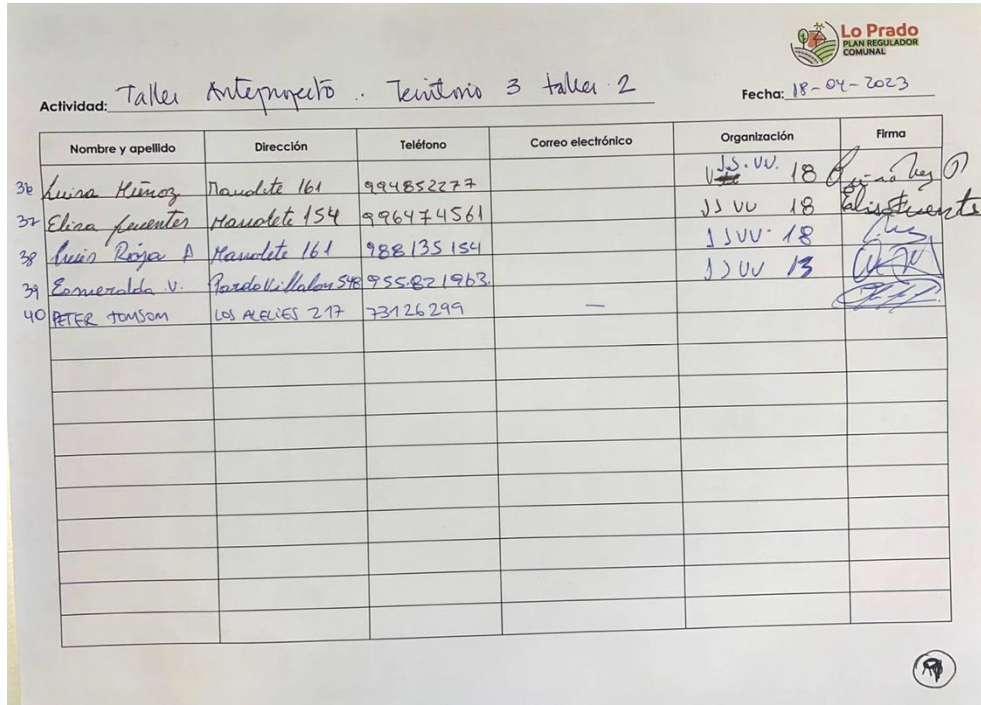 Lo Prado
PLAN REGULADOR
COMUNAL
Actividad: Taller Anteproyecto. Territorio 3 taller 2
Fecha: 18-04-2023
Nombre y apellido Dirección Teléfono Correo electrónico Organización Firma
36 Luisa Muñoz Manolete 161 994852277 JS.VV. 18
37 Elisa Fuentes Manolete 154 996474561 JJ VV 18 Elisa Fuentes
38 Luis Rioja A Manolete 161 988135154 JJVV. 18
39 Esmeralda V. Pardo Villalon 548 955.821963. JJVV 13
40 PETER TOMSOM LOS ALELIES 217 73126299 —